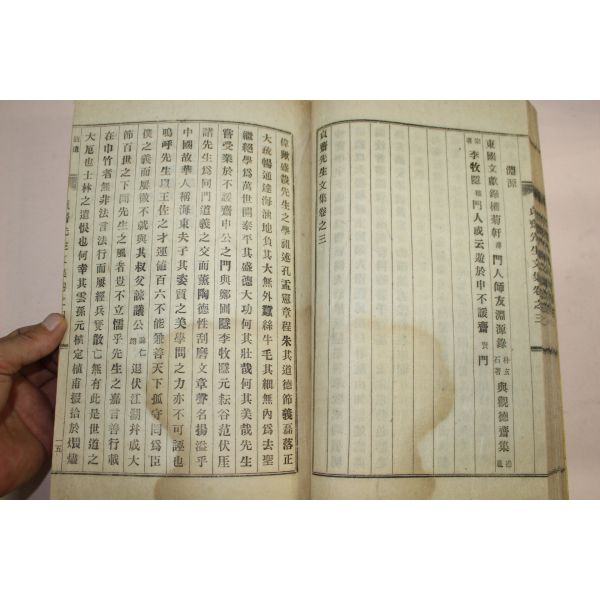 淵源
東國文獻錄楊菊軒 門人師友淵源錄 朴玄石著 與觀德齋集
李牧隱 穡 門人或云遊於申不諼齋 門
貞齋先生文集卷之三
偉歟盛哉先生之學祖述孔孟憲章程朱其道德節義磊落正
大疏暢通達海涵地負其大無外蠶絲牛毛其細無內爲去聖
繼絕學爲萬世開泰平其盛德大功何其壯哉何其美哉先生
嘗受業於不諼齋申公之門與鄭圃隱李牧隱元耘谷范伏厓
諸先生爲同門道義之交而薰陶德性刮磨文章聲名揚溢乎
中國故華人稱海東夫子其姿質之美學問之力亦不可誣也
嗚呼先生以王佐之才運値百六不能兼善天下孤守罔爲臣
僕之義而屢徵不就與其叔父諫議公 退伏江湖幷成大
節百世之下聞先生之風者豈不立懦乎先生之嘉言善行載
在申竹者無非法言法行而屢經兵燹散亡無有此是世道之
大厄也士林之遺恨也何幸其雲孫元植定植甫掇拾於燼
一五